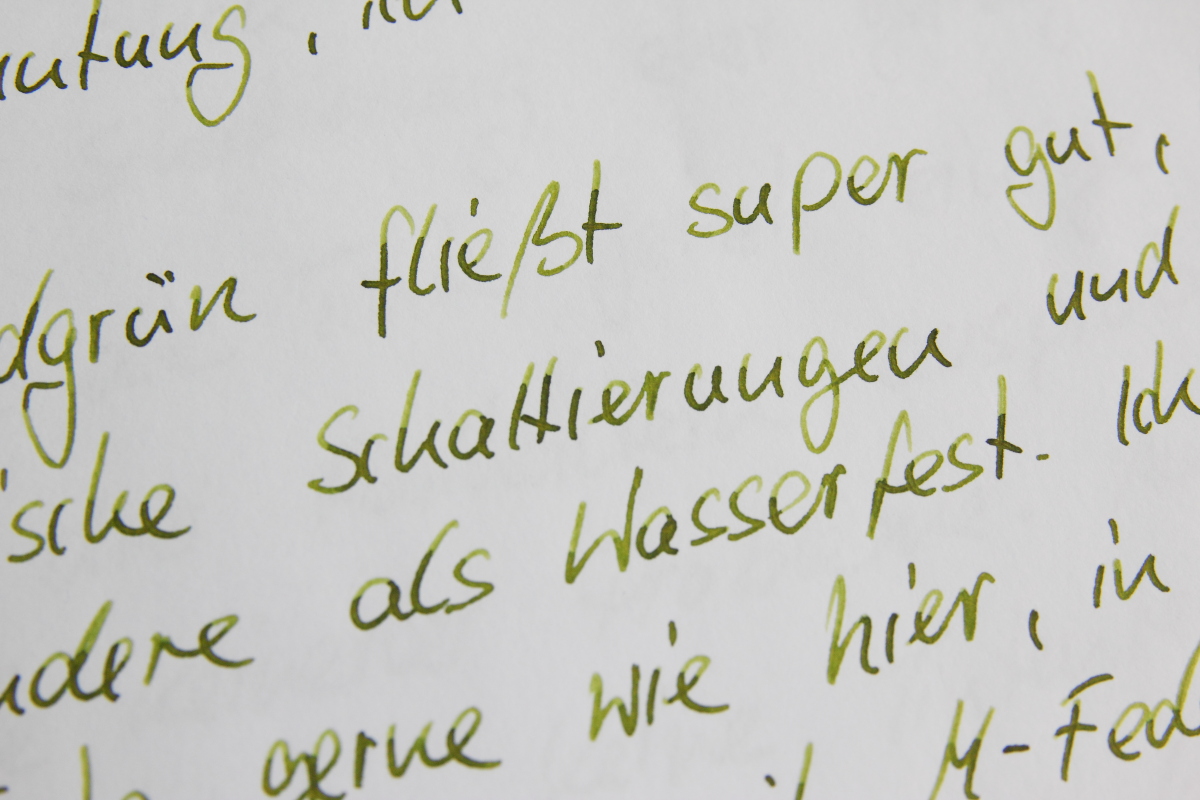 ntung, in
dgrün fließt super gut,
ische Schattierungen und
ndere als Wasserfest. Ich
gerne wie hier, in
M-Fed